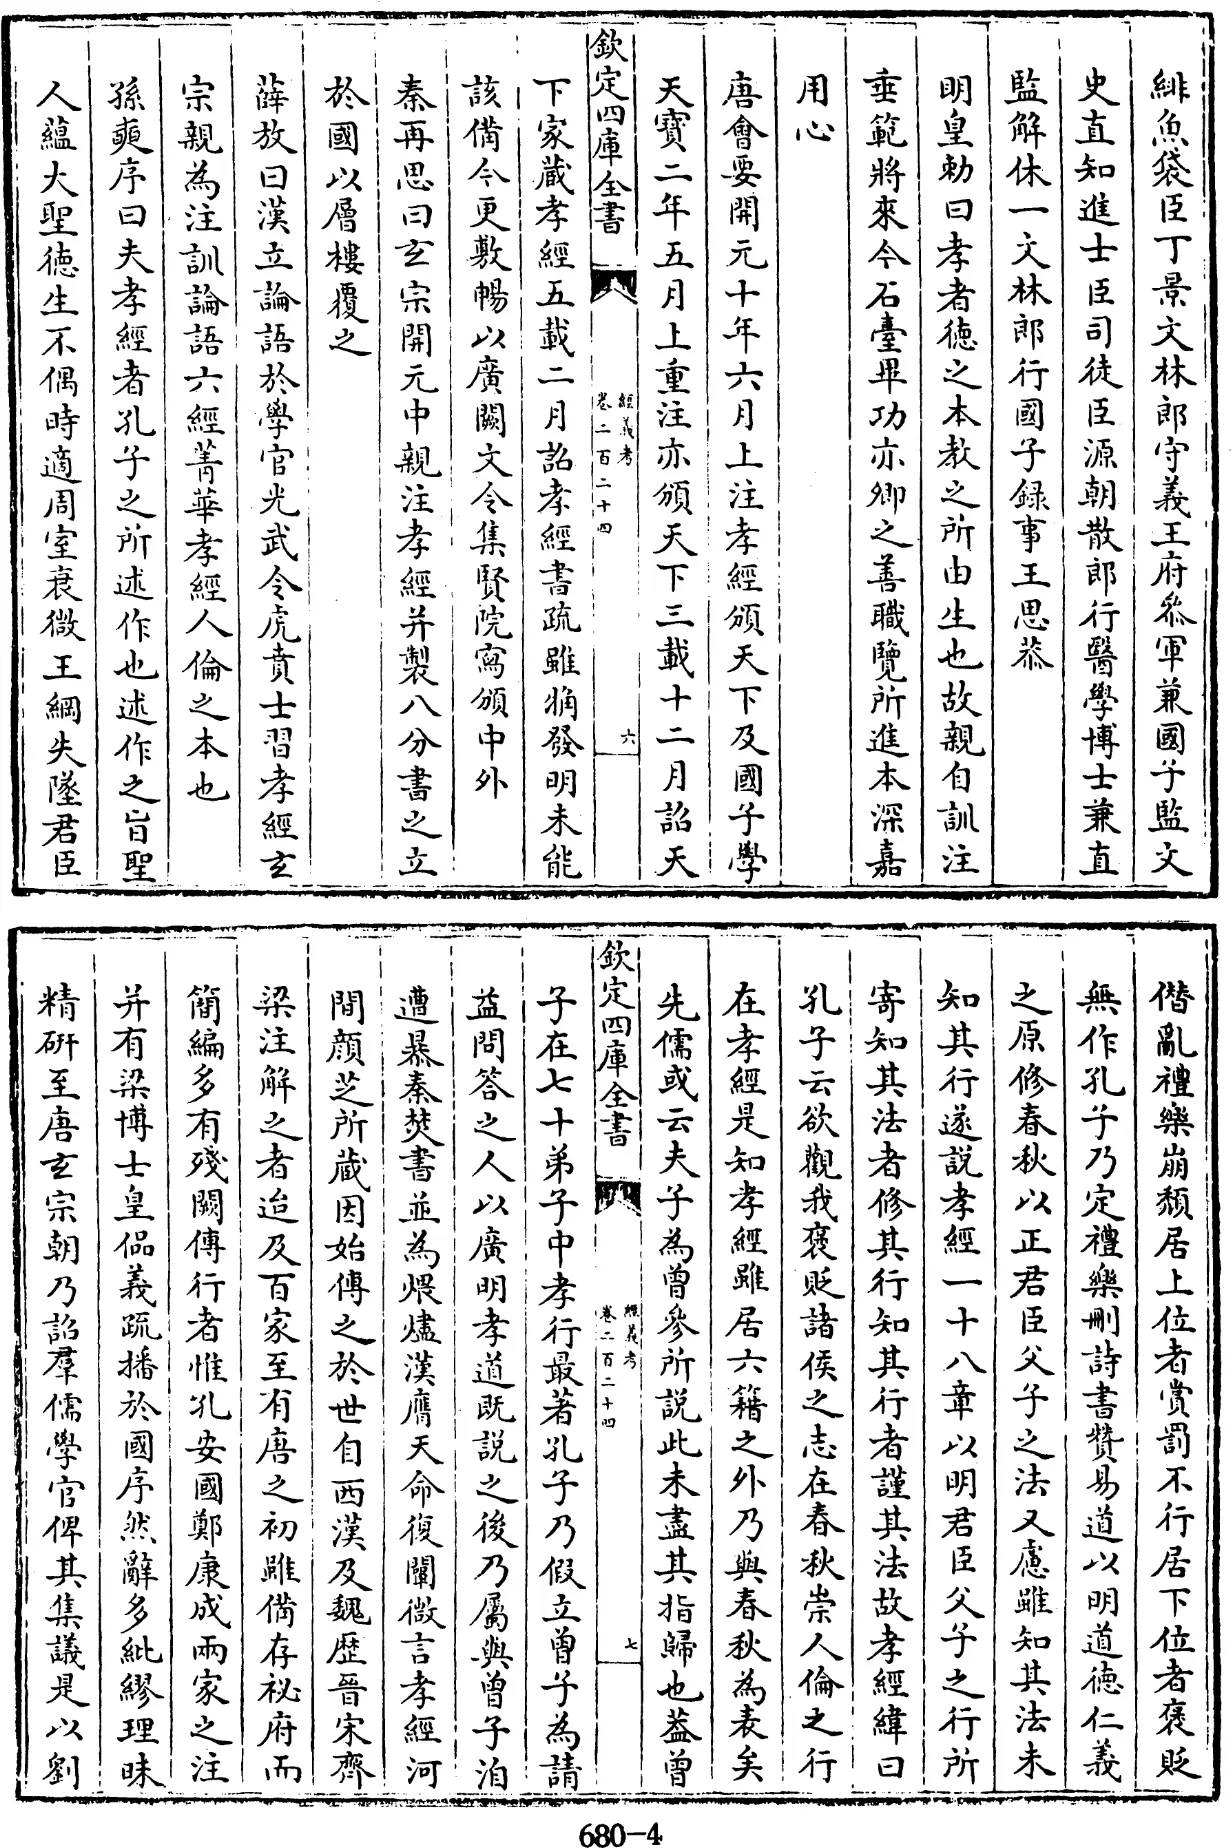 緋魚袋臣丁景文林郎守義王府叅軍兼國子監文
史直知進士臣司徒臣源朝散郎行醫學博士兼直
監解休一文林郎行國子録事王思恭
明皇勅曰孝者徳之本教之所由生也故親自訓注
垂範將來今石臺畢功亦卿之善職覽所進本深嘉
用心
唐會要開元十年六月上注孝經頒天下及國子學
天寳二年五月上重注亦頒天下三載十二月詔天
欽定四庫全書
經義考
卷二百二十四
六
下家藏孝經五載二月詔孝經書疏雖觕發明未能
該備今更敷暢以廣闕文令集賢院寫頒中外
秦再思曰玄宗開元中親注孝經并製八分書之立
於國以層樓覆之
薛放曰漢立論語於學官光武令虎賁士習孝經玄
宗親為注訓論語六經菁華孝經人倫之本也
孫奭序曰夫孝經者孔子之所述作也述作之㫖聖
人蘊大聖徳生不偶時適周室衰微王綱失墜君臣
僭亂禮樂崩頽居上位者賞罰不行居下位者褒貶
無作孔子乃定禮樂刪詩書贊易道以明道德仁義
之原修春秋以正君臣父子之法又慮雖知其法未
知其行遂説孝經一十八章以明君臣父子之行所
寄知其法者修其行知其行者謹其法故孝經緯曰
孔子云欲觀我褒貶諸侯之志在春秋崇人倫之行
在孝經是知孝經雖居六籍之外乃與春秋為表矣
先儒或云夫子為曾參所説此未盡其指歸也葢曾
欽定四庫全書
經義考
卷二百二十四
七
子在七十弟子中孝行最著孔子乃假立曾子為請
益問答之人以廣明孝道既説之後乃屬與曾子洎
遭暴秦焚書並為煨燼漢膺天命復闡微言孝經河
間顔芝所藏因始傳之於世自西漢及魏歴晉宋齊
梁注解之者迨及百家至有唐之初雖備存祕府而
簡編多有殘闕傳行者惟孔安國鄭康成兩家之注
并有梁博士皇侃義疏播於國序然辭多紕繆理昧
精研至唐玄宗朝乃詔羣儒學官俾其集議是以劉
680-4